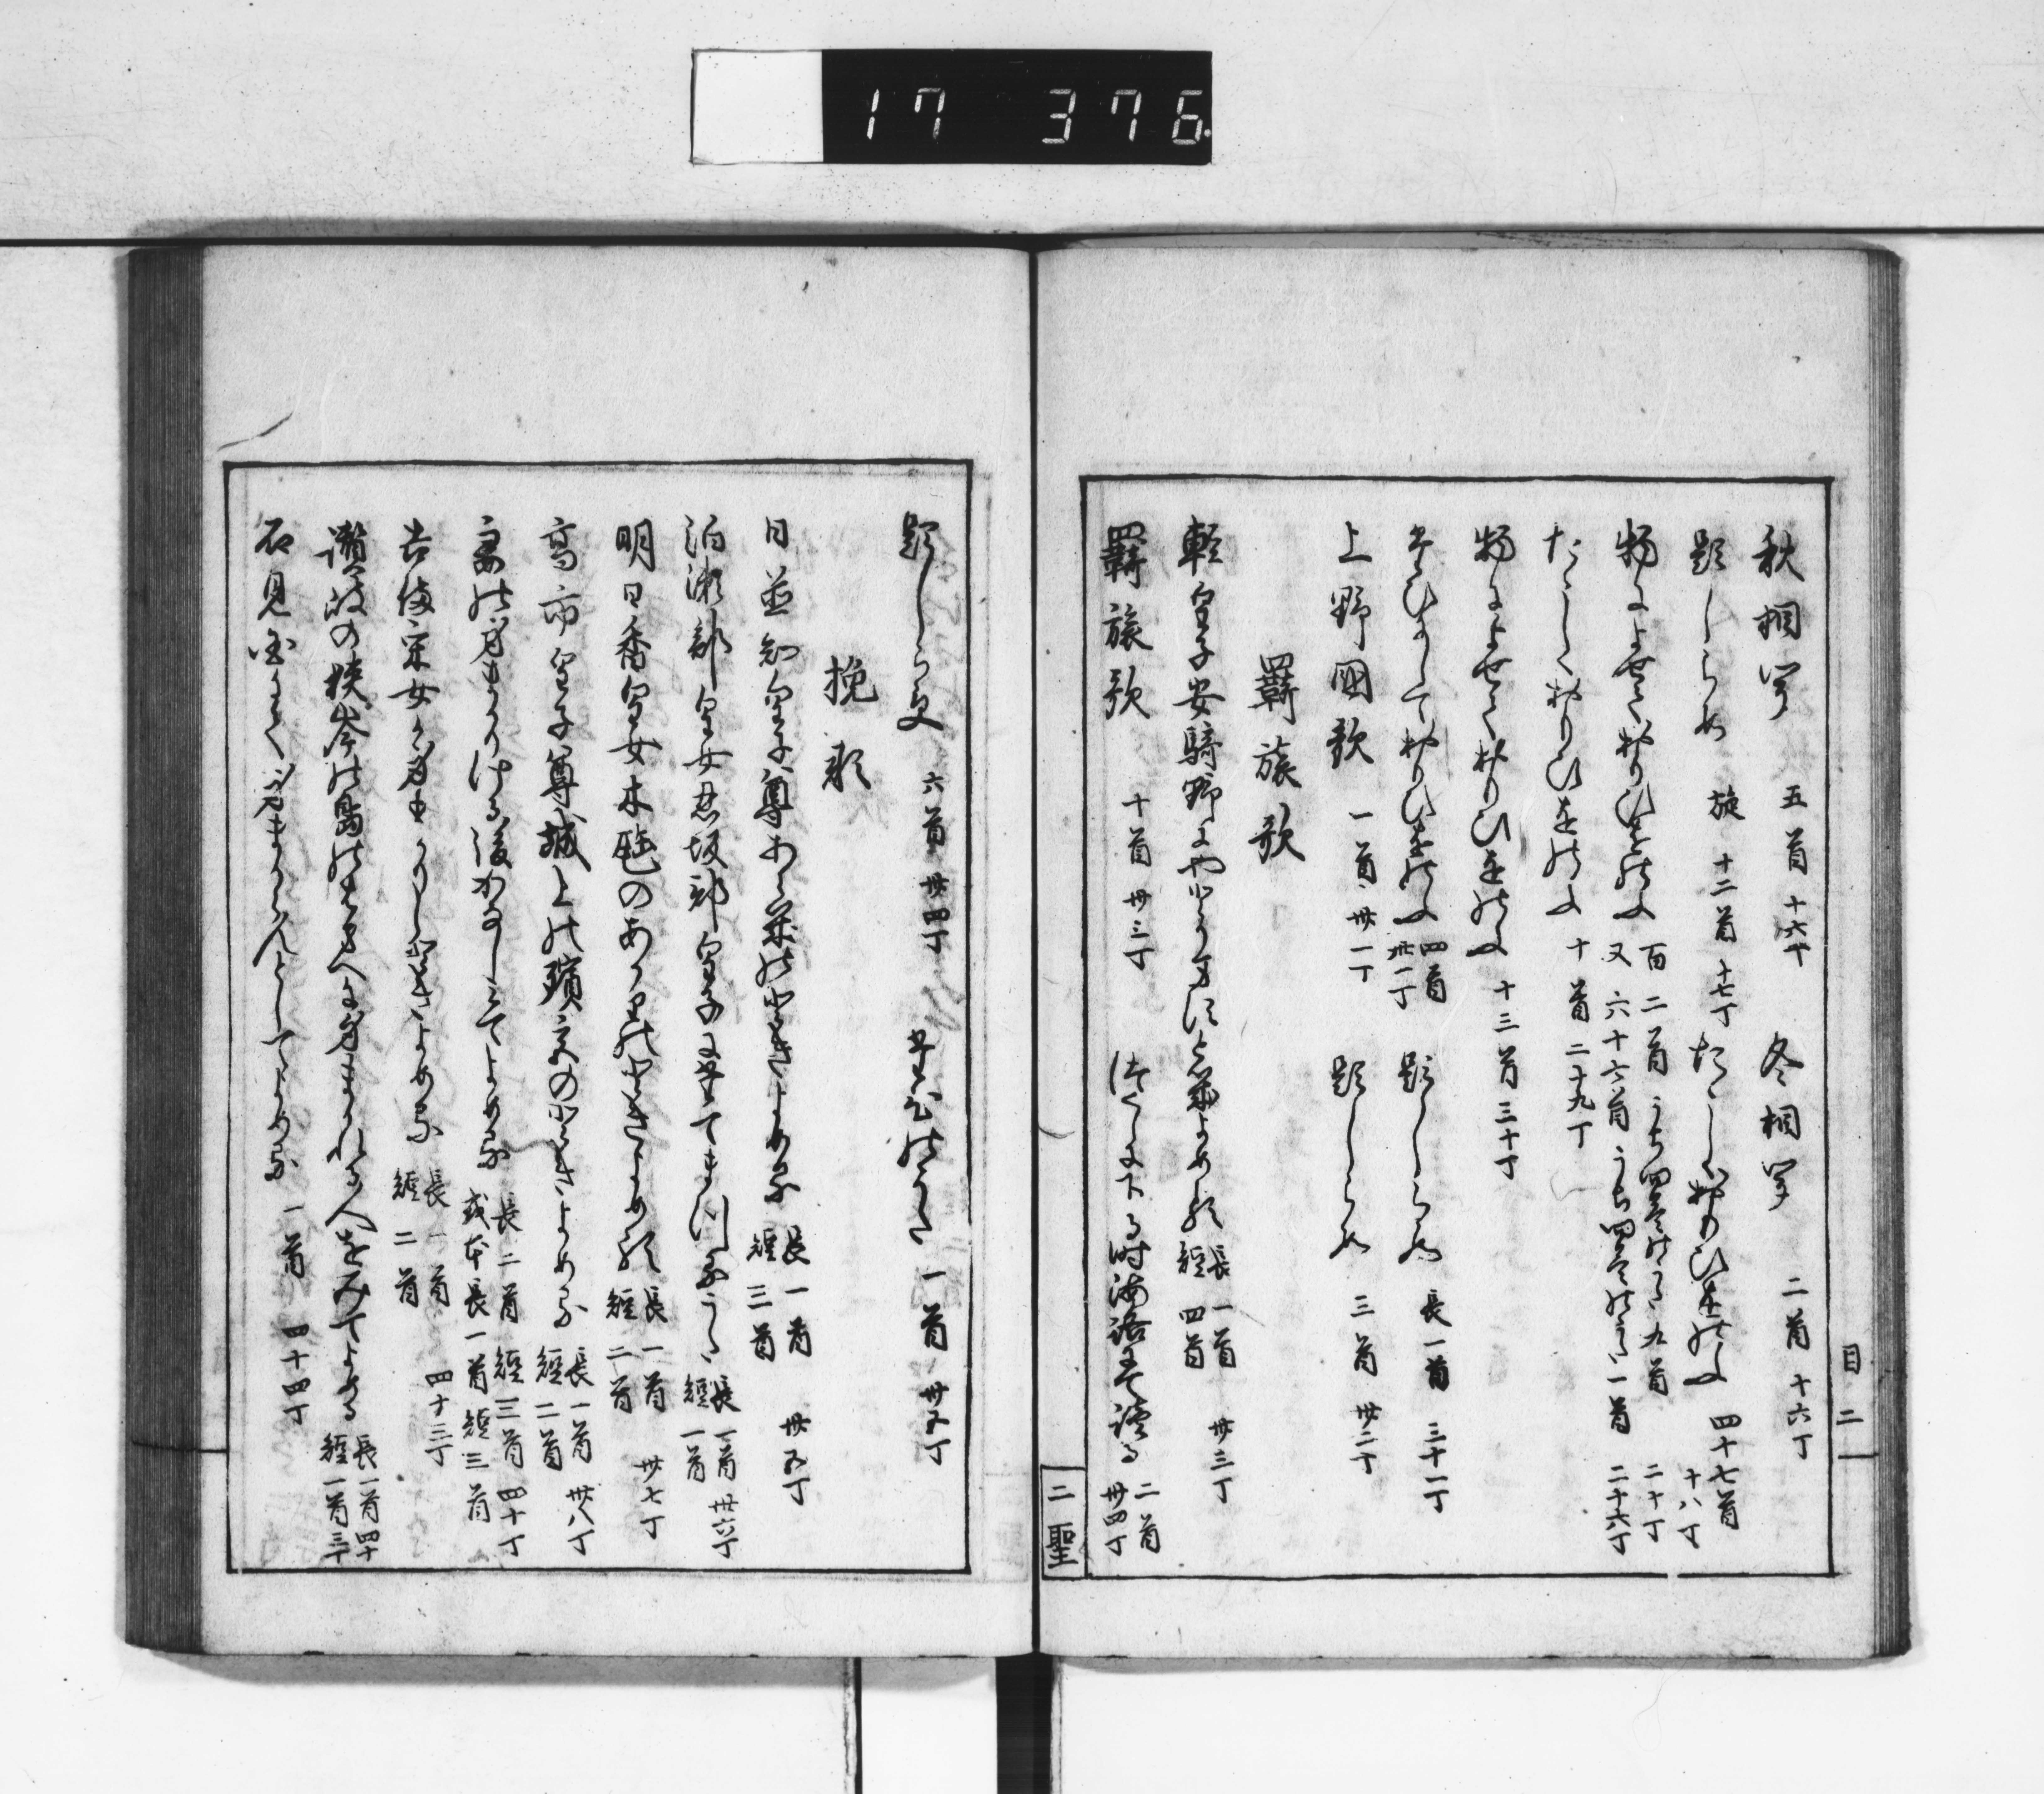 17 376.
秋相聞 五首 十六丁 冬相聞 二首 十六丁
題しらす 旋 十二首 十七丁 たゝしくおもひをのふ 四十七首 十八丁
物によせておもひをのふ 百二首 うち四
又 六十六首 うち四 一首 二十六丁
たゝしくおもひをのふ 十首 二十九丁
物によせておもひをのふ 十三首 三十丁
おもひをのふ 四首 卅一丁 題しらす 長一首 三十一丁
上野国歌 一首 卅一丁 題しらす 三首 卅二丁
羇旅歌
軽皇子安騎野にやとり よめる 長一首 短四首 卅三丁
羇旅歌 十首 卅三丁 つくしに下る時海路にて読る 二首 卅四丁
目二
二聖
題しらす 六首 卅四丁 一首 卅五丁
挽歌
日並知皇子尊あらきのときよめる 長一首 短三首 卅五丁
泊瀬部皇女忍坂部皇子にたてまつるうた 長一首 短一首 卅六丁
明日香皇女木𣑥のあらきのときよめる 長一首 短二首 卅七丁
高市皇子尊城上の殯宮のときよめる 長一首 短二首 卅八丁
妻の身まかりける後かなしみてよめる 長二首 短三首 四十丁
或本長一首 短三首
吉備采女か身まかりしときよめる 長一首 短二首 四十三丁
讃岐の狭岑の島のはまへに身まかれる人をみてよめる 長一首 短一首
石見国にて身まからんとしてよめる 一首 四十四丁